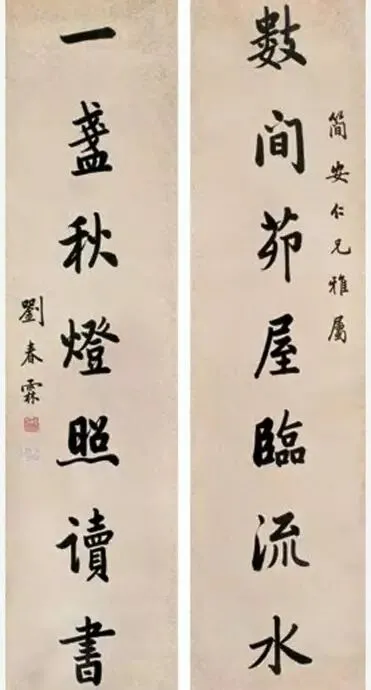 簡安仁兄雅屬
數間茆屋臨流水
一盞秋燈照讀書
劉春霖